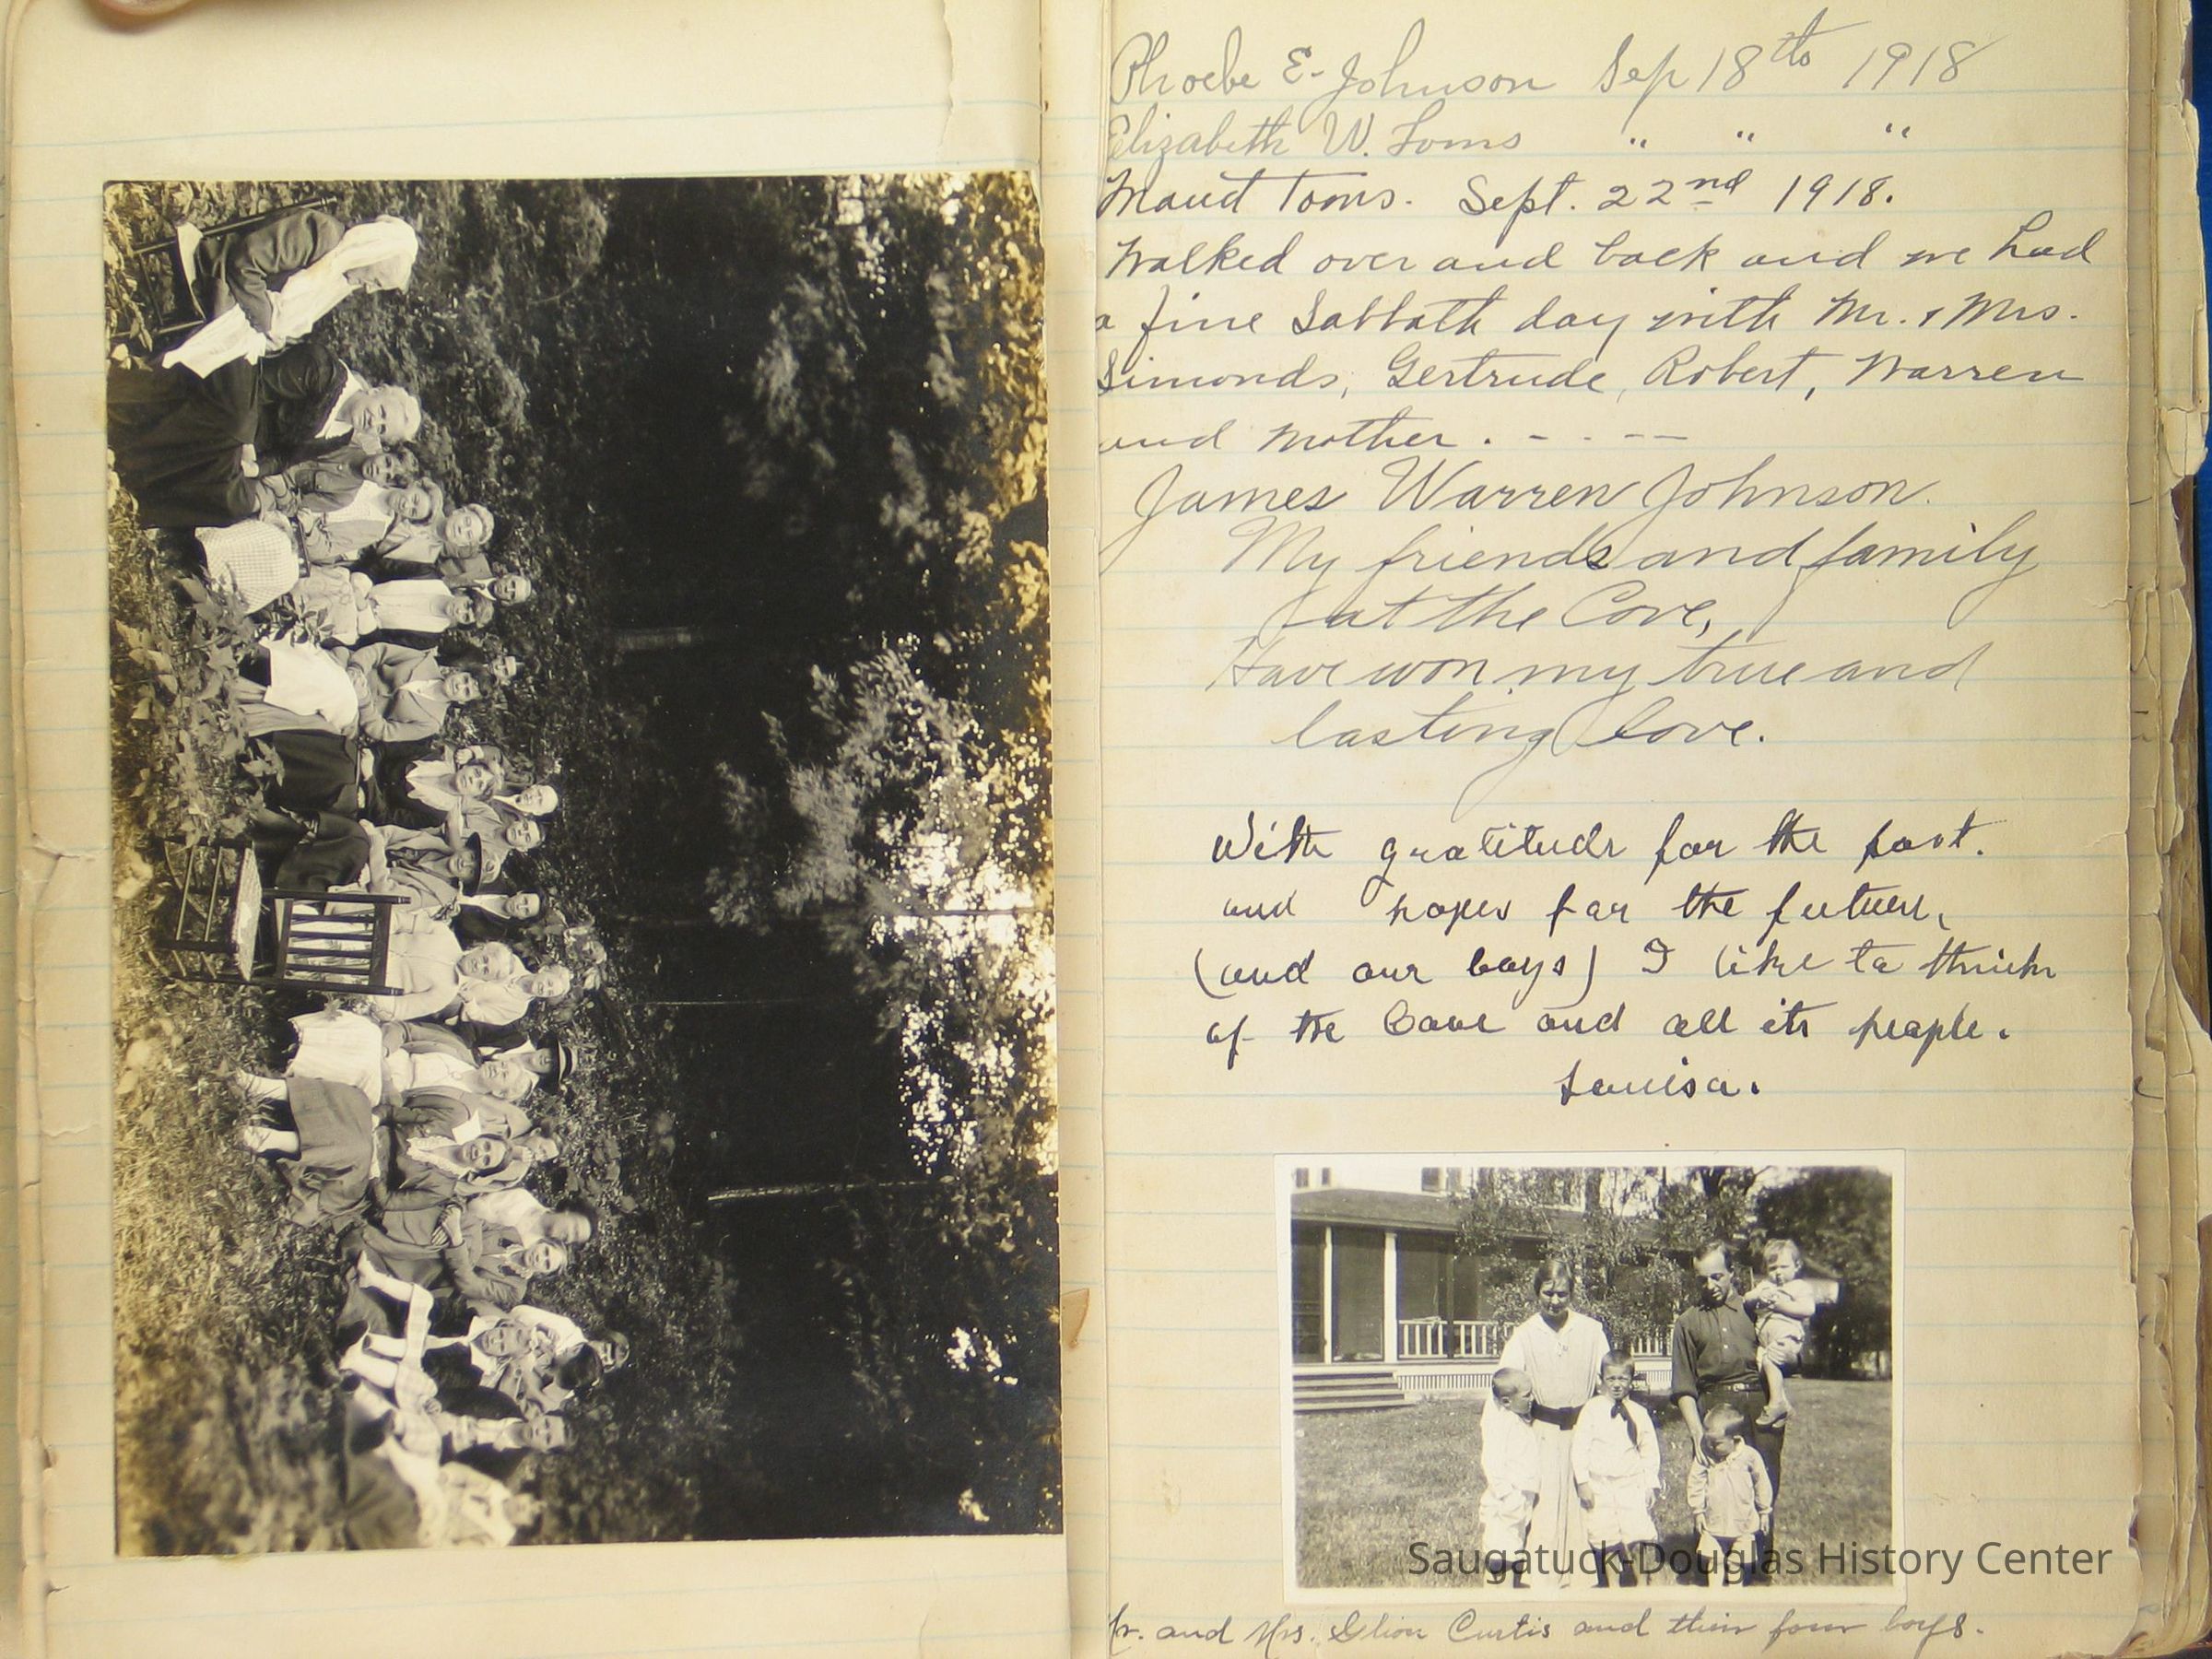 Phoebe E. Johnson Sep 18th 1918
Elizabeth W. Toms " " "
Maud Toms. Sept. 22nd 1918.
Walked over and back and we had
a fine Sabbath day with Mr. & Mrs.
Simonds, Gertrude, Robert, Warren
and Mother. - . - -
James Warren Johnson.
My friends and family
at the Cove,
Have won my true and
lasting love.
With gratitude for the past.
and hopes for the future,
(and our boys) I like to think
of the Cove and all its people.
Louisa.
Saugatuck-Douglas History Center
Mr. and Mrs. Curtis and their four boys.